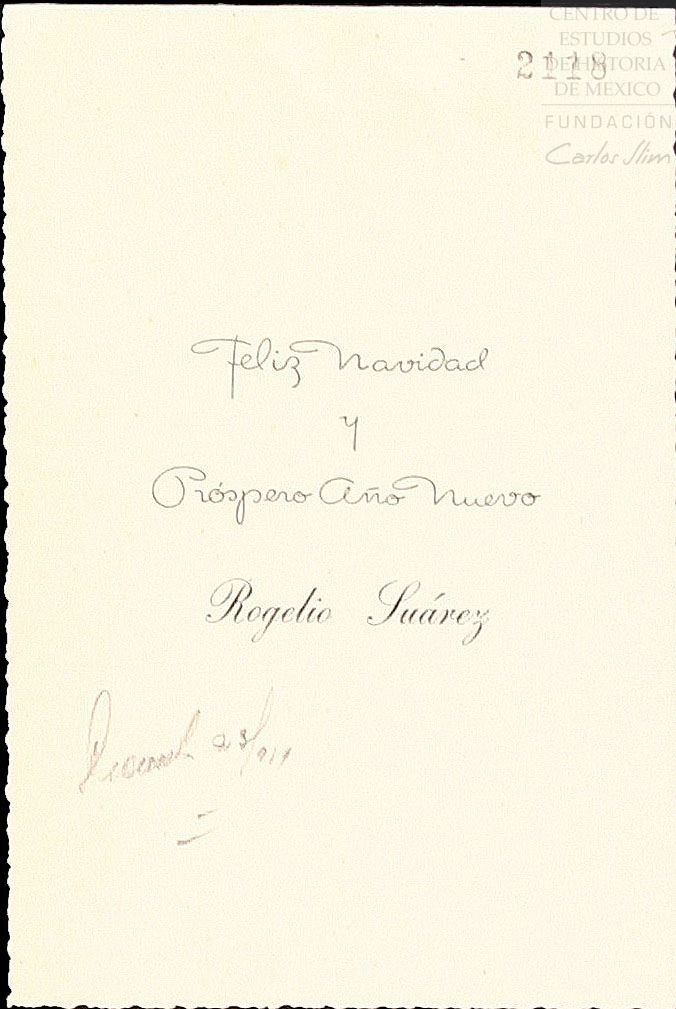 CENTRO DE
ESTUDIOS
DE HISTORIA
DE MEXICO
FUNDACIÓN
Carlos Slim
2118
Feliz Navidad
y
Próspero Año Nuevo
Rogelio Suárez
23/911